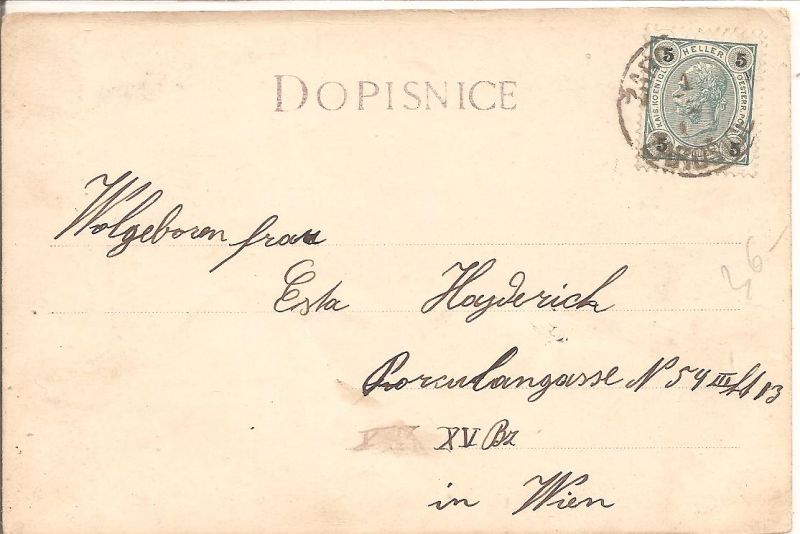 DOPISNICE
5 HELLER 5
KAIS. KOENIGL. OESTERR. POST
5 5
Wolgeboren frau
Esta Hayderich
Porculangasse N 54 III
XV Bz
in Wien
26-